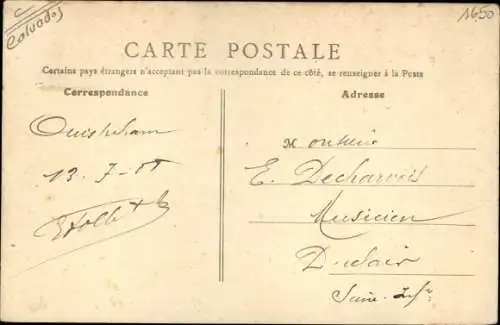 Calvados
1650
CARTE POSTALE
Certains pays étrangers n'acceptant pas la correspondance de ce côté, se renseigner à la Poste
Correspondance
Adresse
Ouistreham
Monsieur
E. Decharvois
Musicien
Duclair
Seine-Infre